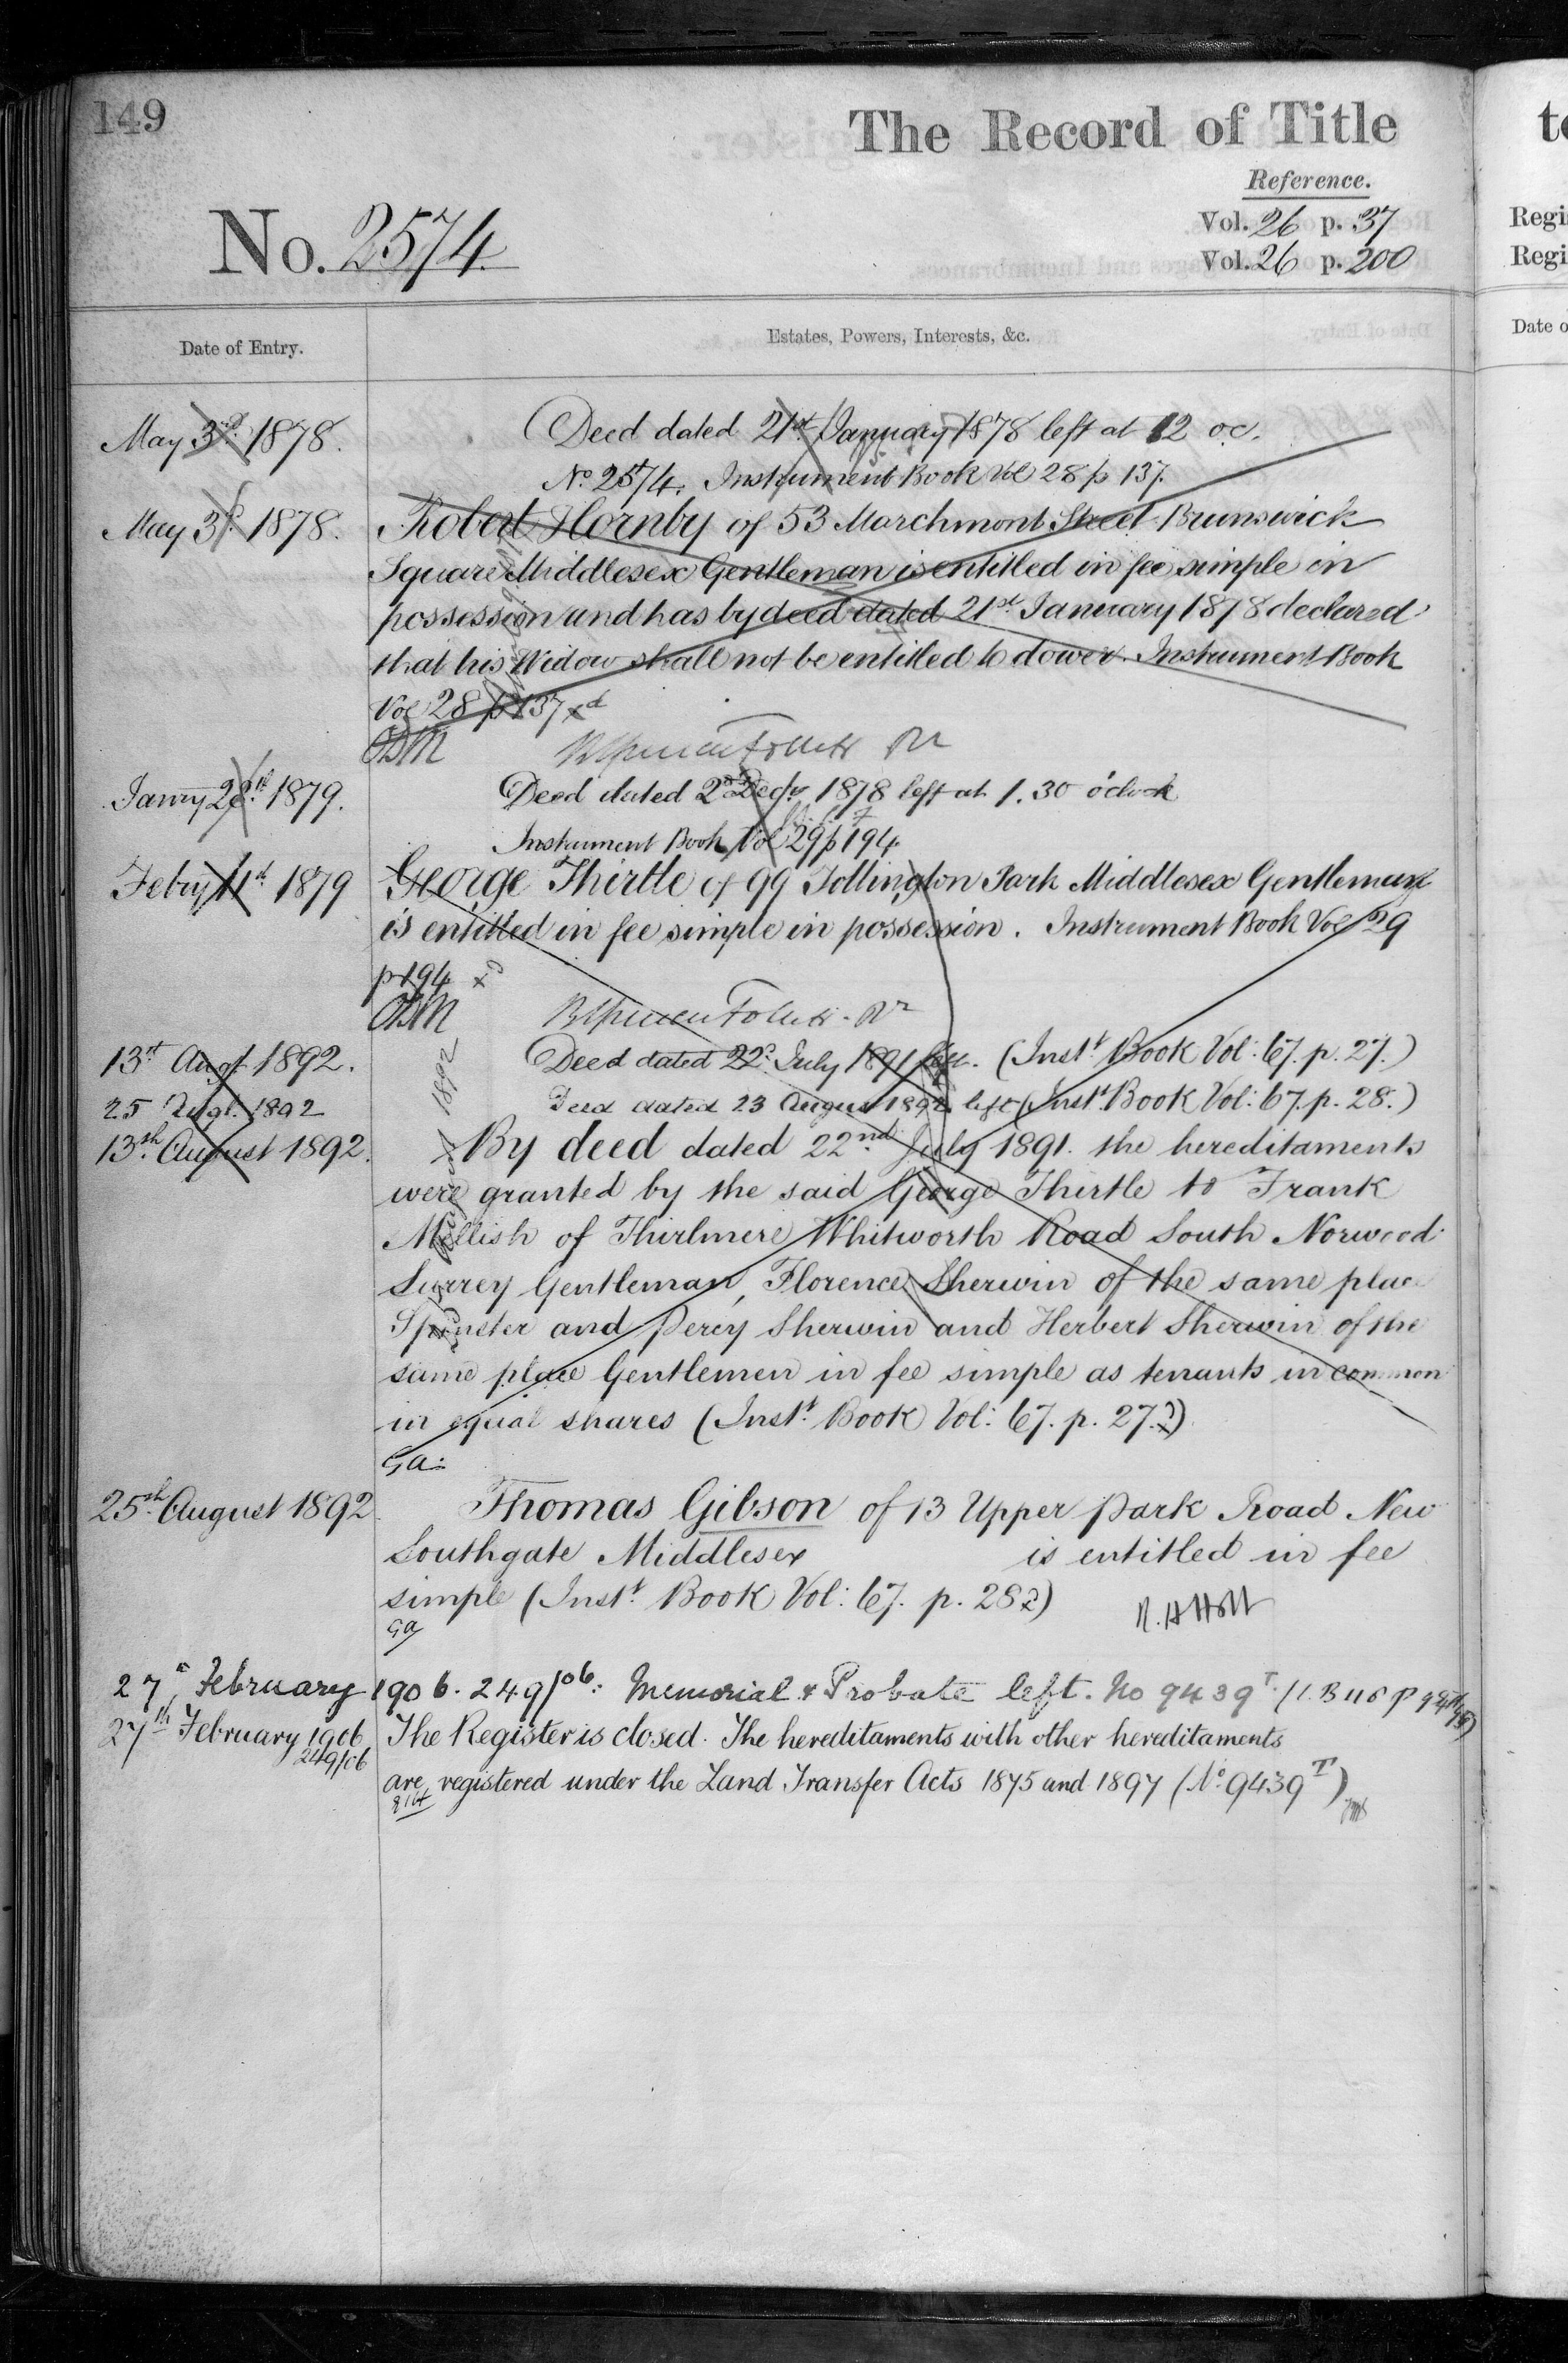 149
The Record of Title
Reference.
No. 2574.
Vol. 26 p. 37
Vol. 26 p. 200
Date of Entry.
Estates, Powers, Interests, &c.
May 3rd 1878.
Deed dated 21st January 1878 left at 12 oc.
No. 2574. Instrument Book Vol 28 p 137.
May 3rd 1878.
Robert Hornby of 53 Marchmont Street Brunswick
Square Middlesex Gentleman is entitled in fee simple in
possession and has by deed dated 21st January 1878 declared
that his Widow shall not be entitled to dower. Instrument Book
Vol 28 p 137
Janry 28th 1879.
Deed dated 2nd Decr 1878 left at 1.30 o'clock
Instrument Book Vol 29 p 194
Febry 11th 1879
George Thirtle of 99 Tollington Park Middlesex Gentleman
is entitled in fee simple in possession. Instrument Book Vol 29
p 194
13th Augt 1892.
Deed dated 22nd July 1891 left. (Instt Book Vol: 67. p. 27.)
25 Augt. 1892
Deed dated 23 August 1892 left (Instt Book Vol: 67. p. 28.)
13th August 1892.
By deed dated 22nd July 1891. the hereditaments
were granted by the said George Thirtle to Frank
Mellish of Thirlmere Whitworth Road South Norwood
Surrey Gentleman, Florence Sherwin of the same place
Spinster and Percy Sherwin and Herbert Sherwin of the
same place Gentlemen in fee simple as tenants in common
in equal shares (Instt Book Vol: 67. p. 27.)
GA:
25th August 1892
Thomas Gibson of 13 Upper Park Road New
Southgate Middlesex is entitled in fee
simple (Instt Book Vol: 67. p. 28)
GA
27th February 1906. 249/06: Memorial & Probate left. No 9439T. (I.B 118 p
27th February 1906
249/06
The Register is closed. The hereditaments with other hereditaments
are registered under the Land Transfer Acts 1875 and 1897 (No. 9439T)
Regi
Regi
Date o